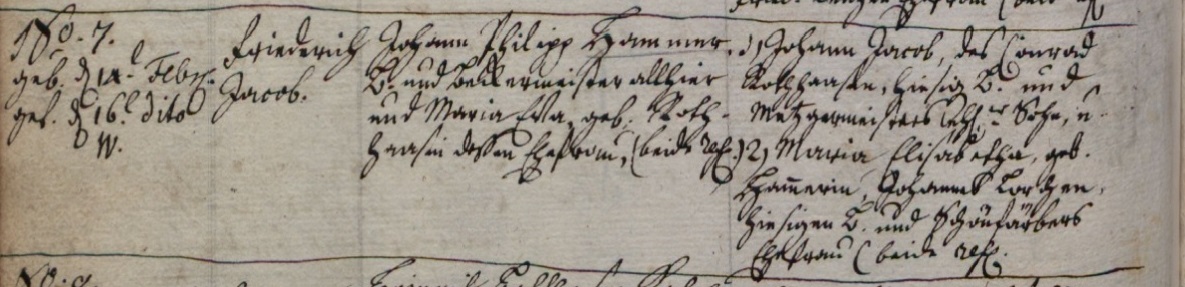 No. 7.
geb. d. 14. Febr.
get. d. 16. dito
W.
Friederich
Jacob.
Johann Philipp Hammer,
B. und Beckermeister allhier
und Maria Eva, geb. Roth-
haasin dessen Ehefrau, (beide ref.)
1) Johann Jacob, des Conrad
Rothhaasen, hiesig B. und
Metzgermeisters Sohn, u.
2) Maria Elisabetha, geb.
Ham̄erin, Johannes
hiesigen B. und Schönfärbers
Ehefrau (beide ref.